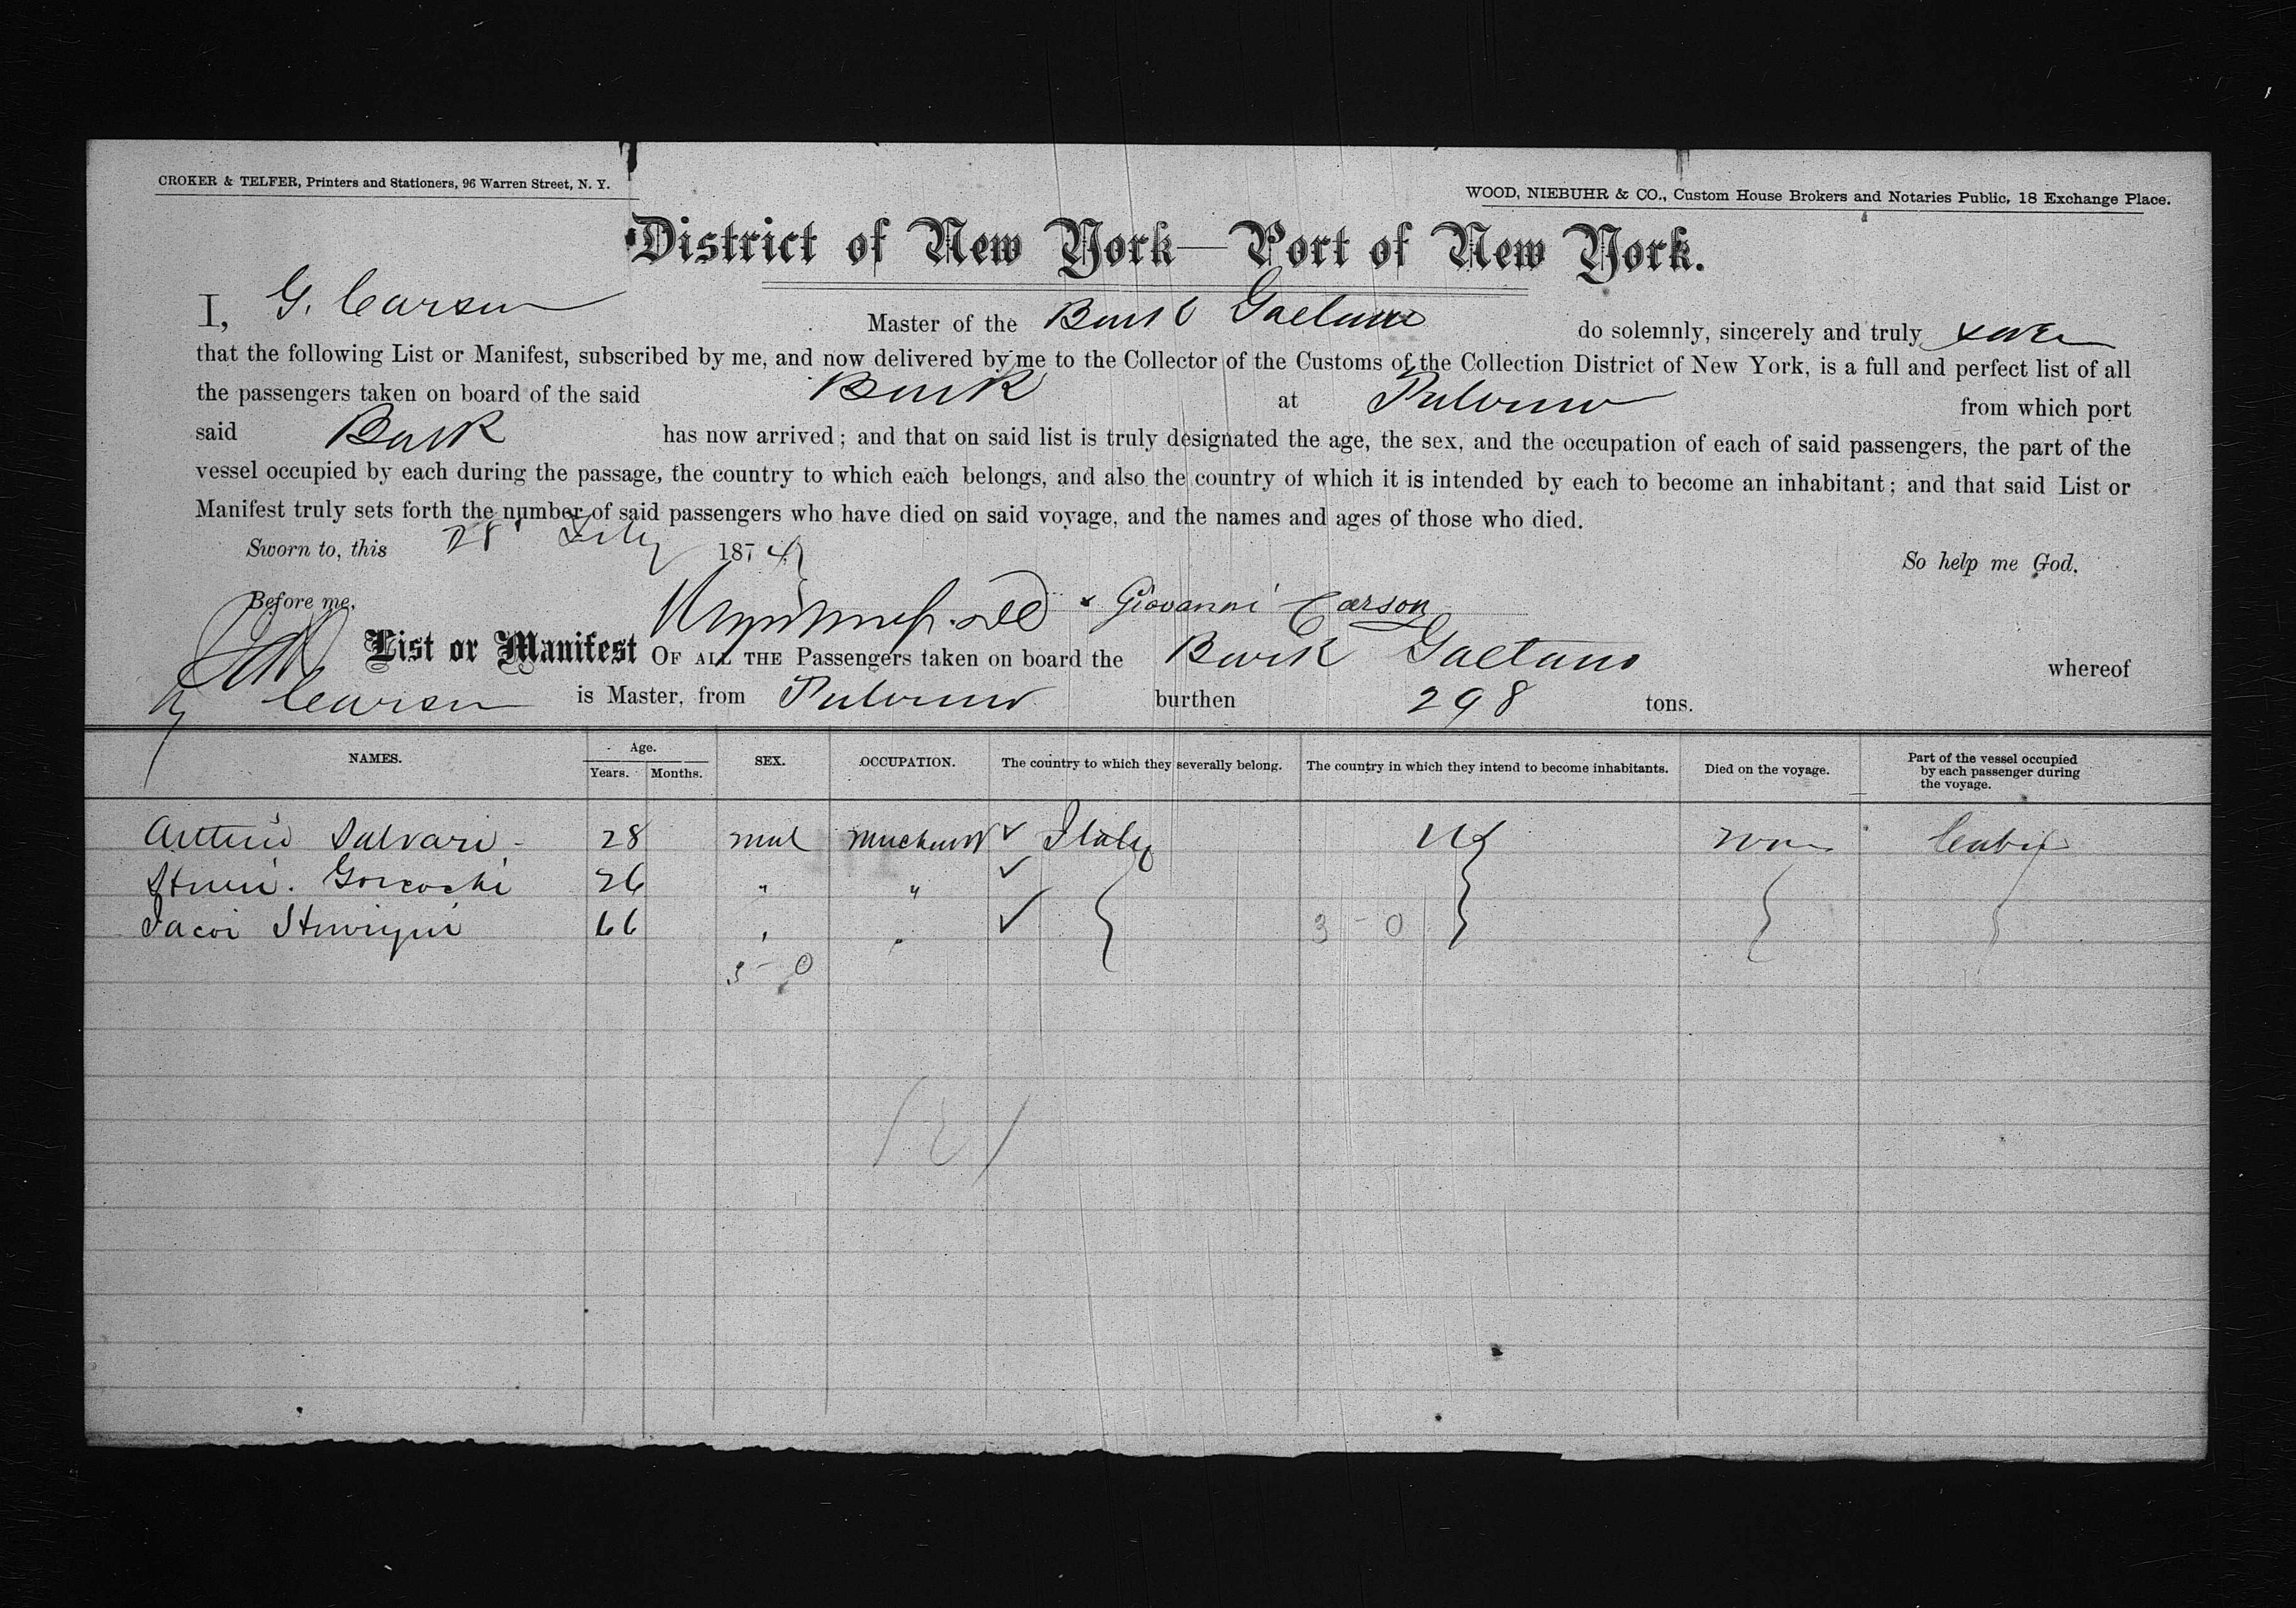 CROKER & TELFER, Printers and Stationers, 96 Warren Street, N. Y.
WOOD, NIEBUHR & CO., Custom House Brokers and Notaries Public, 18 Exchange Place.
District of New York—Port of New York.
I, G. Carson Master of the Bark Gaetano do solemnly, sincerely and truly
that the following List or Manifest, subscribed by me, and now delivered by me to the Collector of the Customs of the Collection District of New York, is a full and perfect list of all
the passengers taken on board of the said Bark at Palermo from which port
said Bark has now arrived; and that on said list is truly designated the age, the sex, and the occupation of each of said passengers, the part of the
vessel occupied by each during the passage, the country to which each belongs, and also the country of which it is intended by each to become an inhabitant; and that said List or
Manifest truly sets forth the number of said passengers who have died on said voyage, and the names and ages of those who died.
Sworn to, this 28 July 1874 So help me God.
Before me, Giovanni Carson
List or Manifest OF ALL THE Passengers taken on board the Bark Gaetano whereof
Carson is Master, from Palermo burthen 298 tons.
NAMES. Age. Years. Months. SEX. OCCUPATION. The country to which they severally belong. The country in which they intend to become inhabitants. Died on the voyage. Part of the vessel occupied by each passenger during the voyage.
Salvari 28 mal Italy US non Cabin
26 " "
66
3 - 0
3 - 0